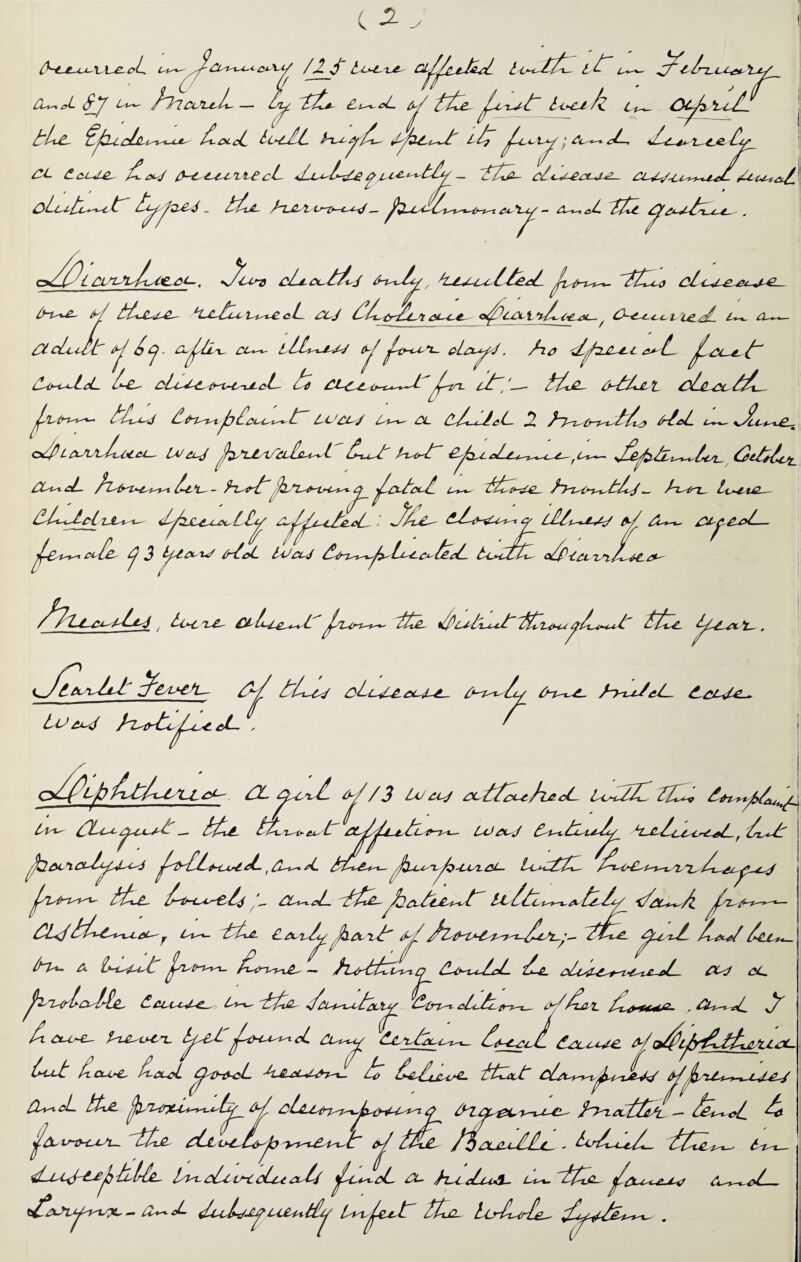 (2)
Occurred in January 125 were affected with it in February
and 87 in March — by the end of the first week in April
the Epidemic had well nigh spent its fury; and scarcely
a case has occurred subsequently — the disease assumed usual
distinct types — the nervous — pulmonary — and the Gastric.
Diarrhoea. Two deaths only, resulted from this disease
one of these returned as Cholraic Diarrhoea, occurred in an
adult of 69. after an illness of four days. No special fact
could be discovered to account for it; — the other death
from this complaint was in a child 2 months old in June,
Diarrhoea was prevalent but not Epidemic, in September, October
and November — not proving fatal in those months — nor were
Children specially affected: The closing illness of an aged
female 93 years old was complicated with Diarrhoea
Measles, were absent from the District throughout the year.
Scarlet Fever Of this disease only one mild case
was notified.
Diphtheria A girl of 13 was attacked with this Complaint
in August — the throat affection was entirely relieved, but
paralysis followed, and then purpura with hoemorrhages
from the bowels; — and the patient ultimately sank from
Asthenia, in the early part of November; — the girl had been
on a visit from home — nothing could be discovered as a
probable cause in the sanitary condition of her house, and I
have never yet found any certain local cause of Diphtheria
but have had good reason to believe that dampness of premises
and the proximity of decomposing organic matter — tend to
favour the development of the Bacilli — which then in
susceptible individuals find a nidus in the fauces and
Larynx — and subsequently infect the whole System.